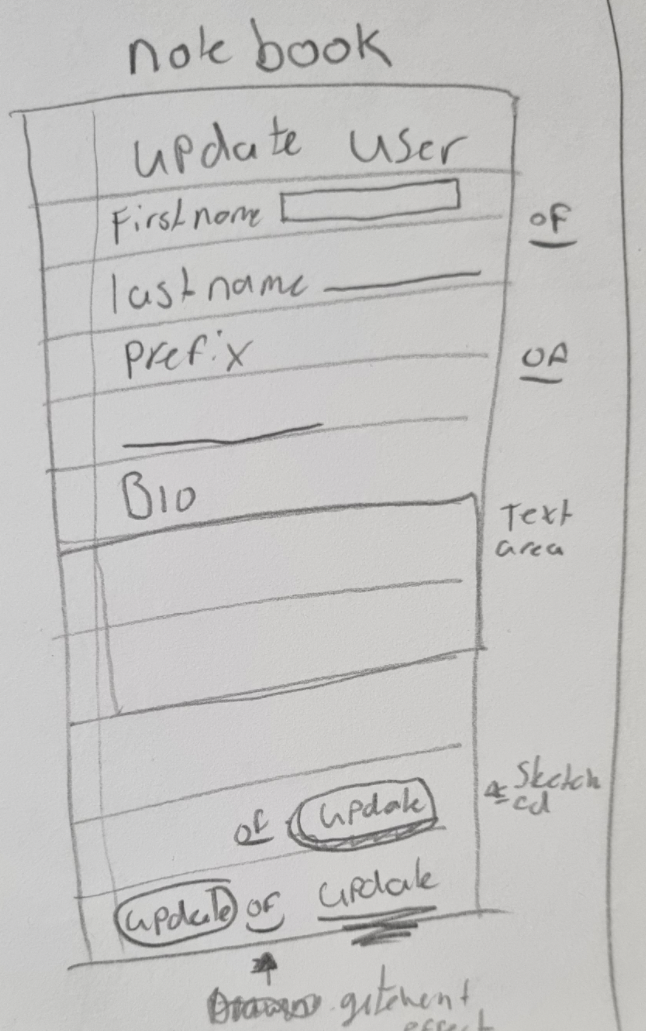 note book
update user
First name
of
last name
Prefix
of
Bio
Text
area
Sketch
ed
of update
update of update
effect